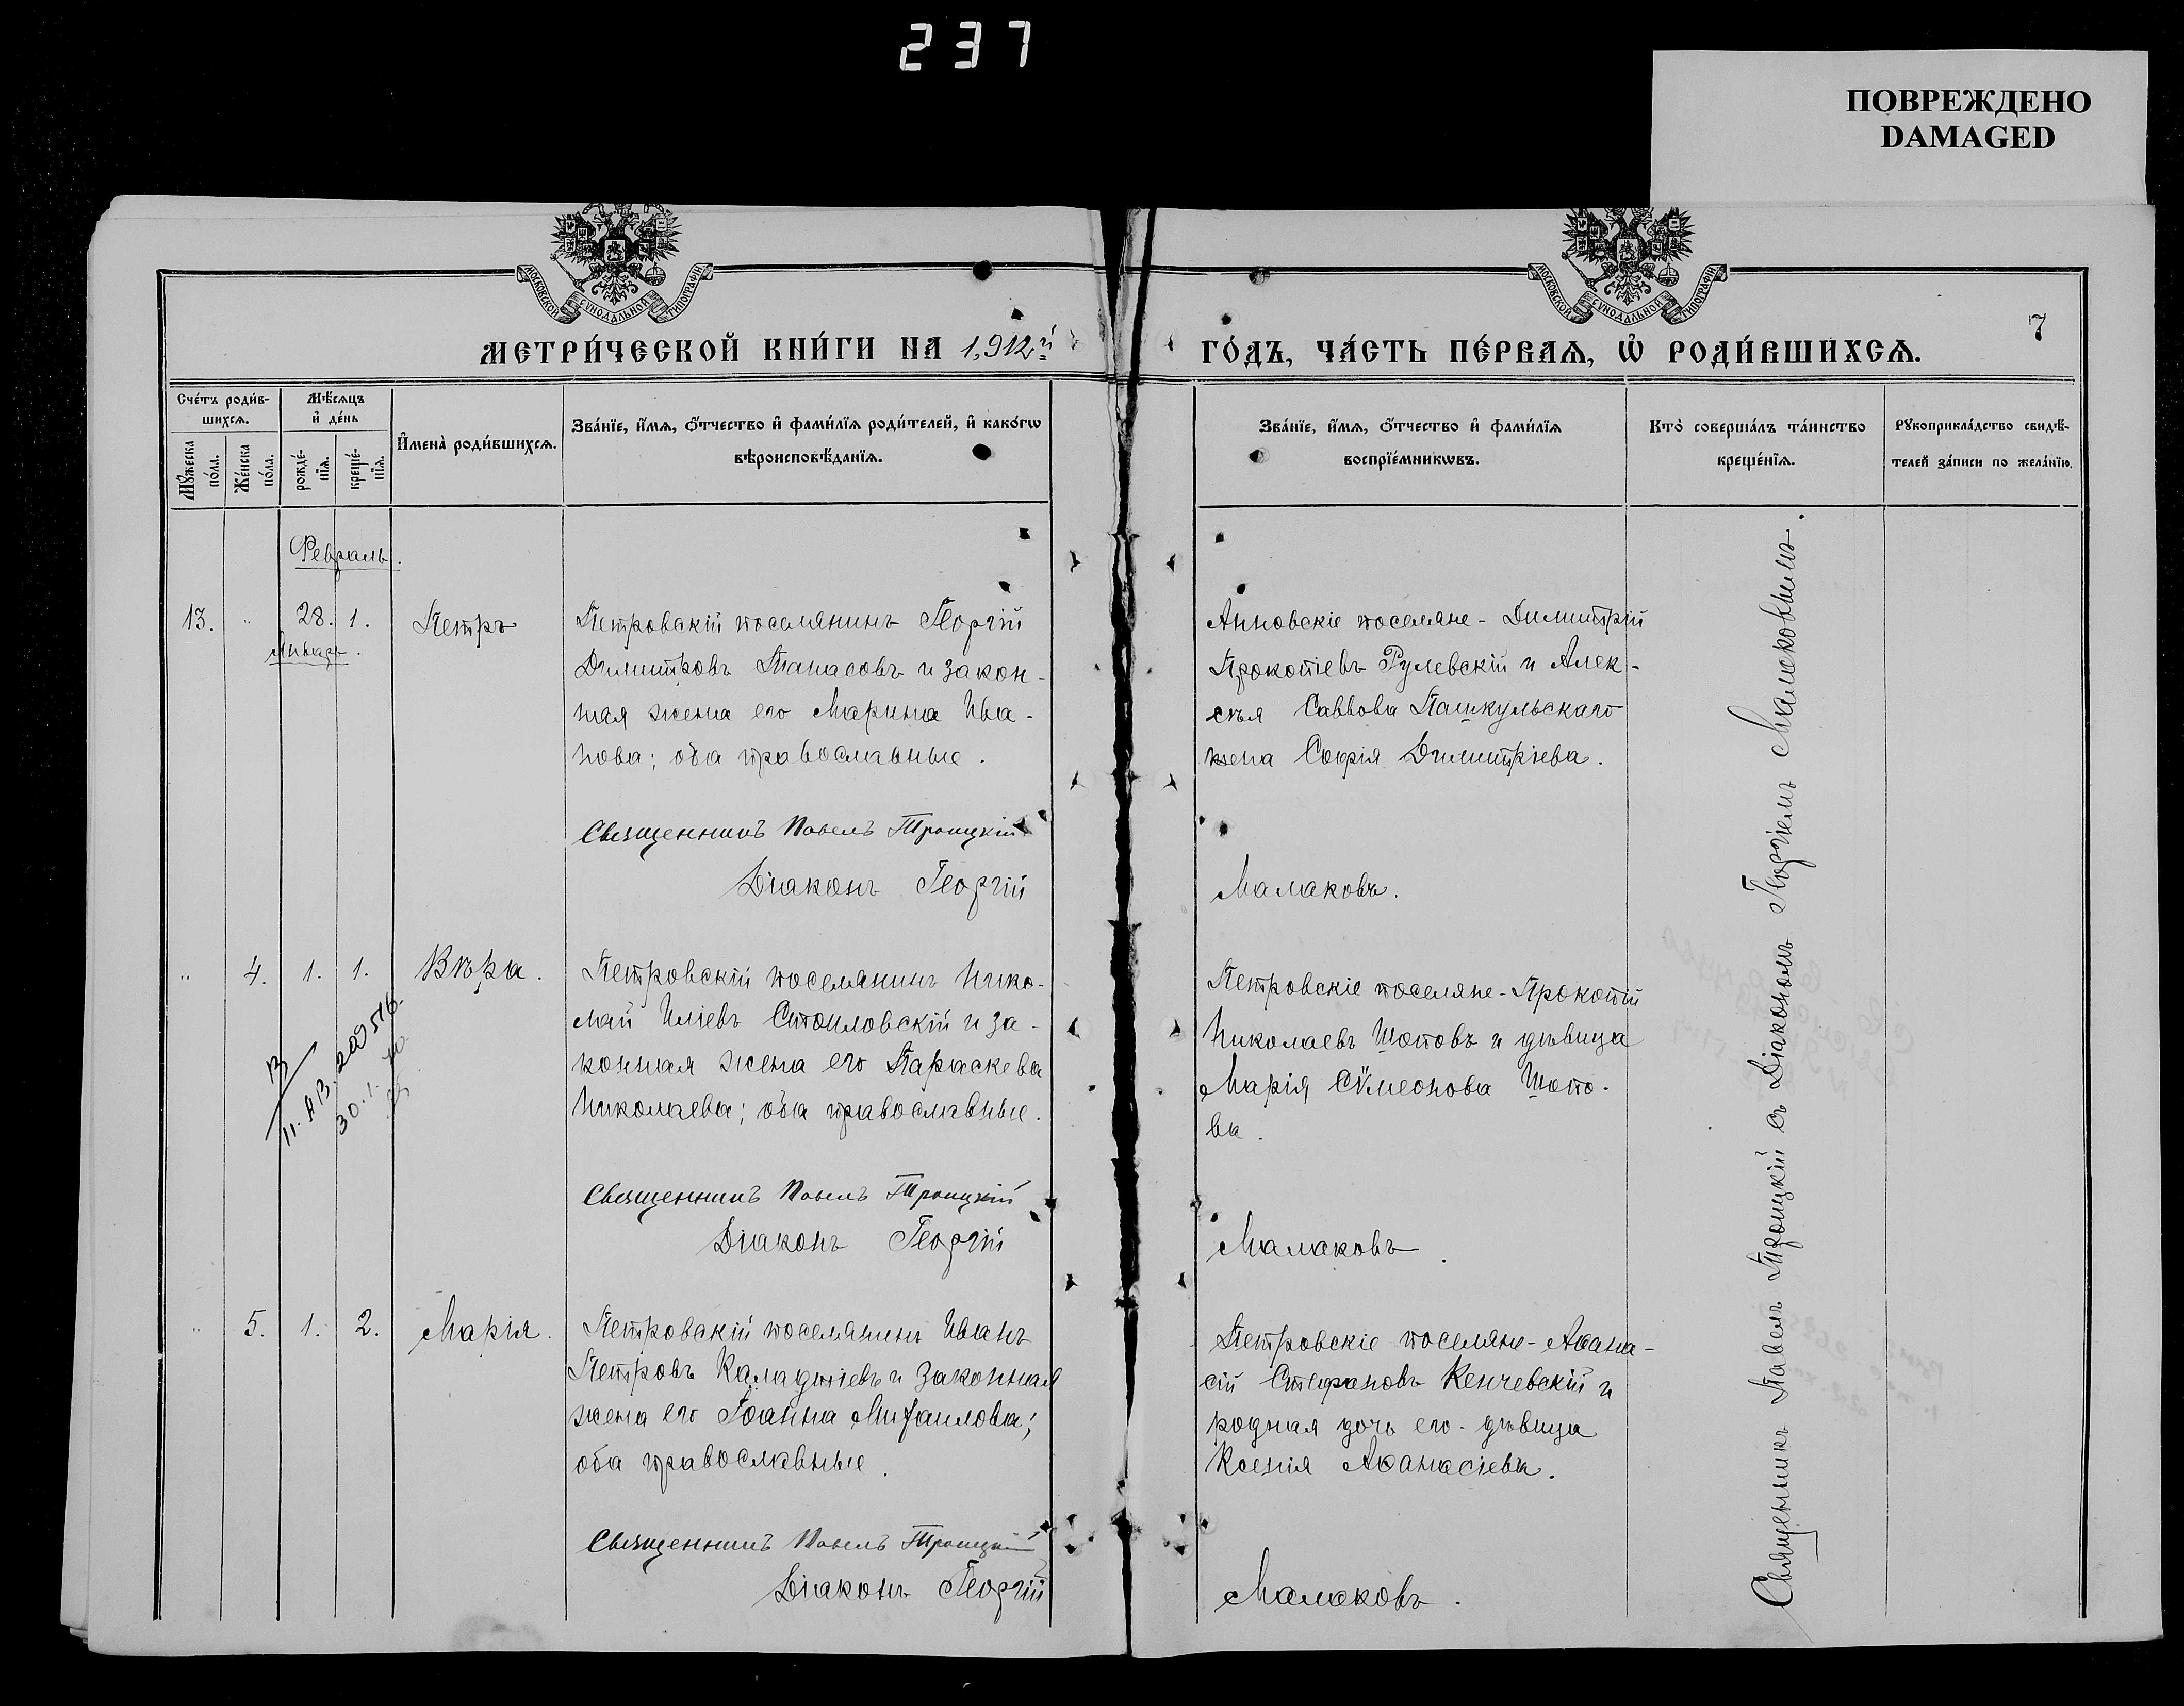 237
ПОВРЕЖДЕНО
DAMAGED
МОСКОВСКОЙ СѴНОДАЛЬНОЙ ТИПОГРАФІИ
МОСКОВСКОЙ СѴНОДАЛЬНОЙ ТИПОГРАФІИ
7
МЕТРИ́ЧЕСКОЙ КНИ́ГИ НА 1912й
ГО́ДЪ, ЧА́СТЬ ПЕ́РВАѦ, Ѡ҆ РОДИ́ВШИХСѦ.
Сче́тъ роди́в-
шихсѧ.
Мꙋ́жеска по́ла.
Же́нска по́ла.
Мѣ́сѧцъ
и҆ де́нь
рожде́-
нїѧ.
креще́-
нїѧ.
И҆мена̀ роди́вшихсѧ.
Зва́нїе, и҆́мѧ, ѻ҆́тчество и҆ фами́лїѧ роди́телей, и҆ како́гѡ
вѣроисповѣ́данїѧ.
Зва́нїе, и҆́мѧ, ѻ҆́тчество и҆ фами́лїѧ
воспрїе́мникѡвъ.
Кто̀ соверша́лъ та́инство
креще́нїѧ.
Рꙋкоприкла́дство свидѣ́-
телей за́писи по жела́нїю.
Февраль.
13. " 28. 1. Петръ
Январь.
Петровскій поселянинъ Георгій
Димитровъ Танасовъ и закон-
ная жена его Марина Ива-
нова; оба православные.
Священникъ Павелъ Троицкій
Діаконъ Георгій
Анновскіе поселяне - Димитрій
Прокопіевъ Рулевскій и Алек-
сѣя Саввова Пашкульскаго
жена Софія Димитріева.
Малаковъ.
" 4. 1. 1. Вѣра.
Петровскій поселянинъ Нико-
лай Иліевъ Стоиловскій и за-
конная жена его Параскева
Николаева; оба православные.
Священникъ Павелъ Троицкій
Діаконъ Георгій
Петровскіе поселяне - Прокопій
Николаевъ Шоповъ и дѣвица
Марія Сѵмеонова Шопо-
ва.
Малаковъ.
II-АВ. 209516.
30.1.
" 5. 1. 2. Марія.
Петровскій поселянинъ Иванъ
Петровъ Каладжіевъ и законная
жена его Іоанна Михаилова;
оба православные.
Священникъ Павелъ Троицкій
Діаконъ Георгій
Петровскіе поселяне - Аѳана-
сій Стефановъ Кенчевскій и
родная дочь его - дѣвица
Ксенія Аѳанасіева.
Малаковъ.
Священникъ Павелъ Троицкій съ Діакономъ Георгіемъ Малаковымъ.